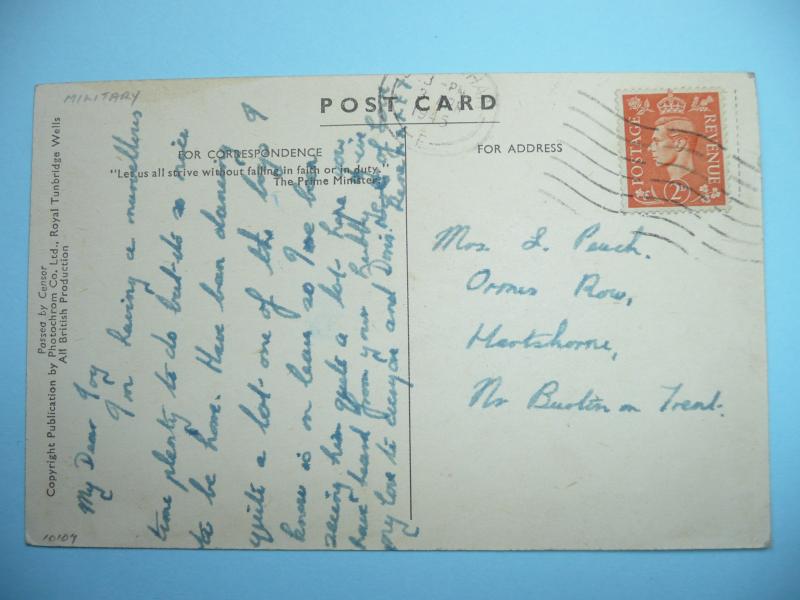 MILITARY
POST CARD
FOR CORRESPONDENCE
"Let us all strive without failing in faith or in duty."
The Prime Minister.
FOR ADDRESS
POSTAGE
REVENUE
2D
Passed by Censor
Copyright Publication by Photochrom Co. Ltd., Royal Tunbridge Wells
All British Production
My Dear Joy
I'm having a marvellous
time plenty to do but its so nice
to be home. Have been dancing
quite a lot one of the lads I
know is on leave so I've been
seeing him quite a lot. hope you
have heard from your hubby, give
my love to everyone and Doris.
Mrs. L. Peach.
Ormes Row,
Hartshorne,
Nr Burton on Trent.
10109